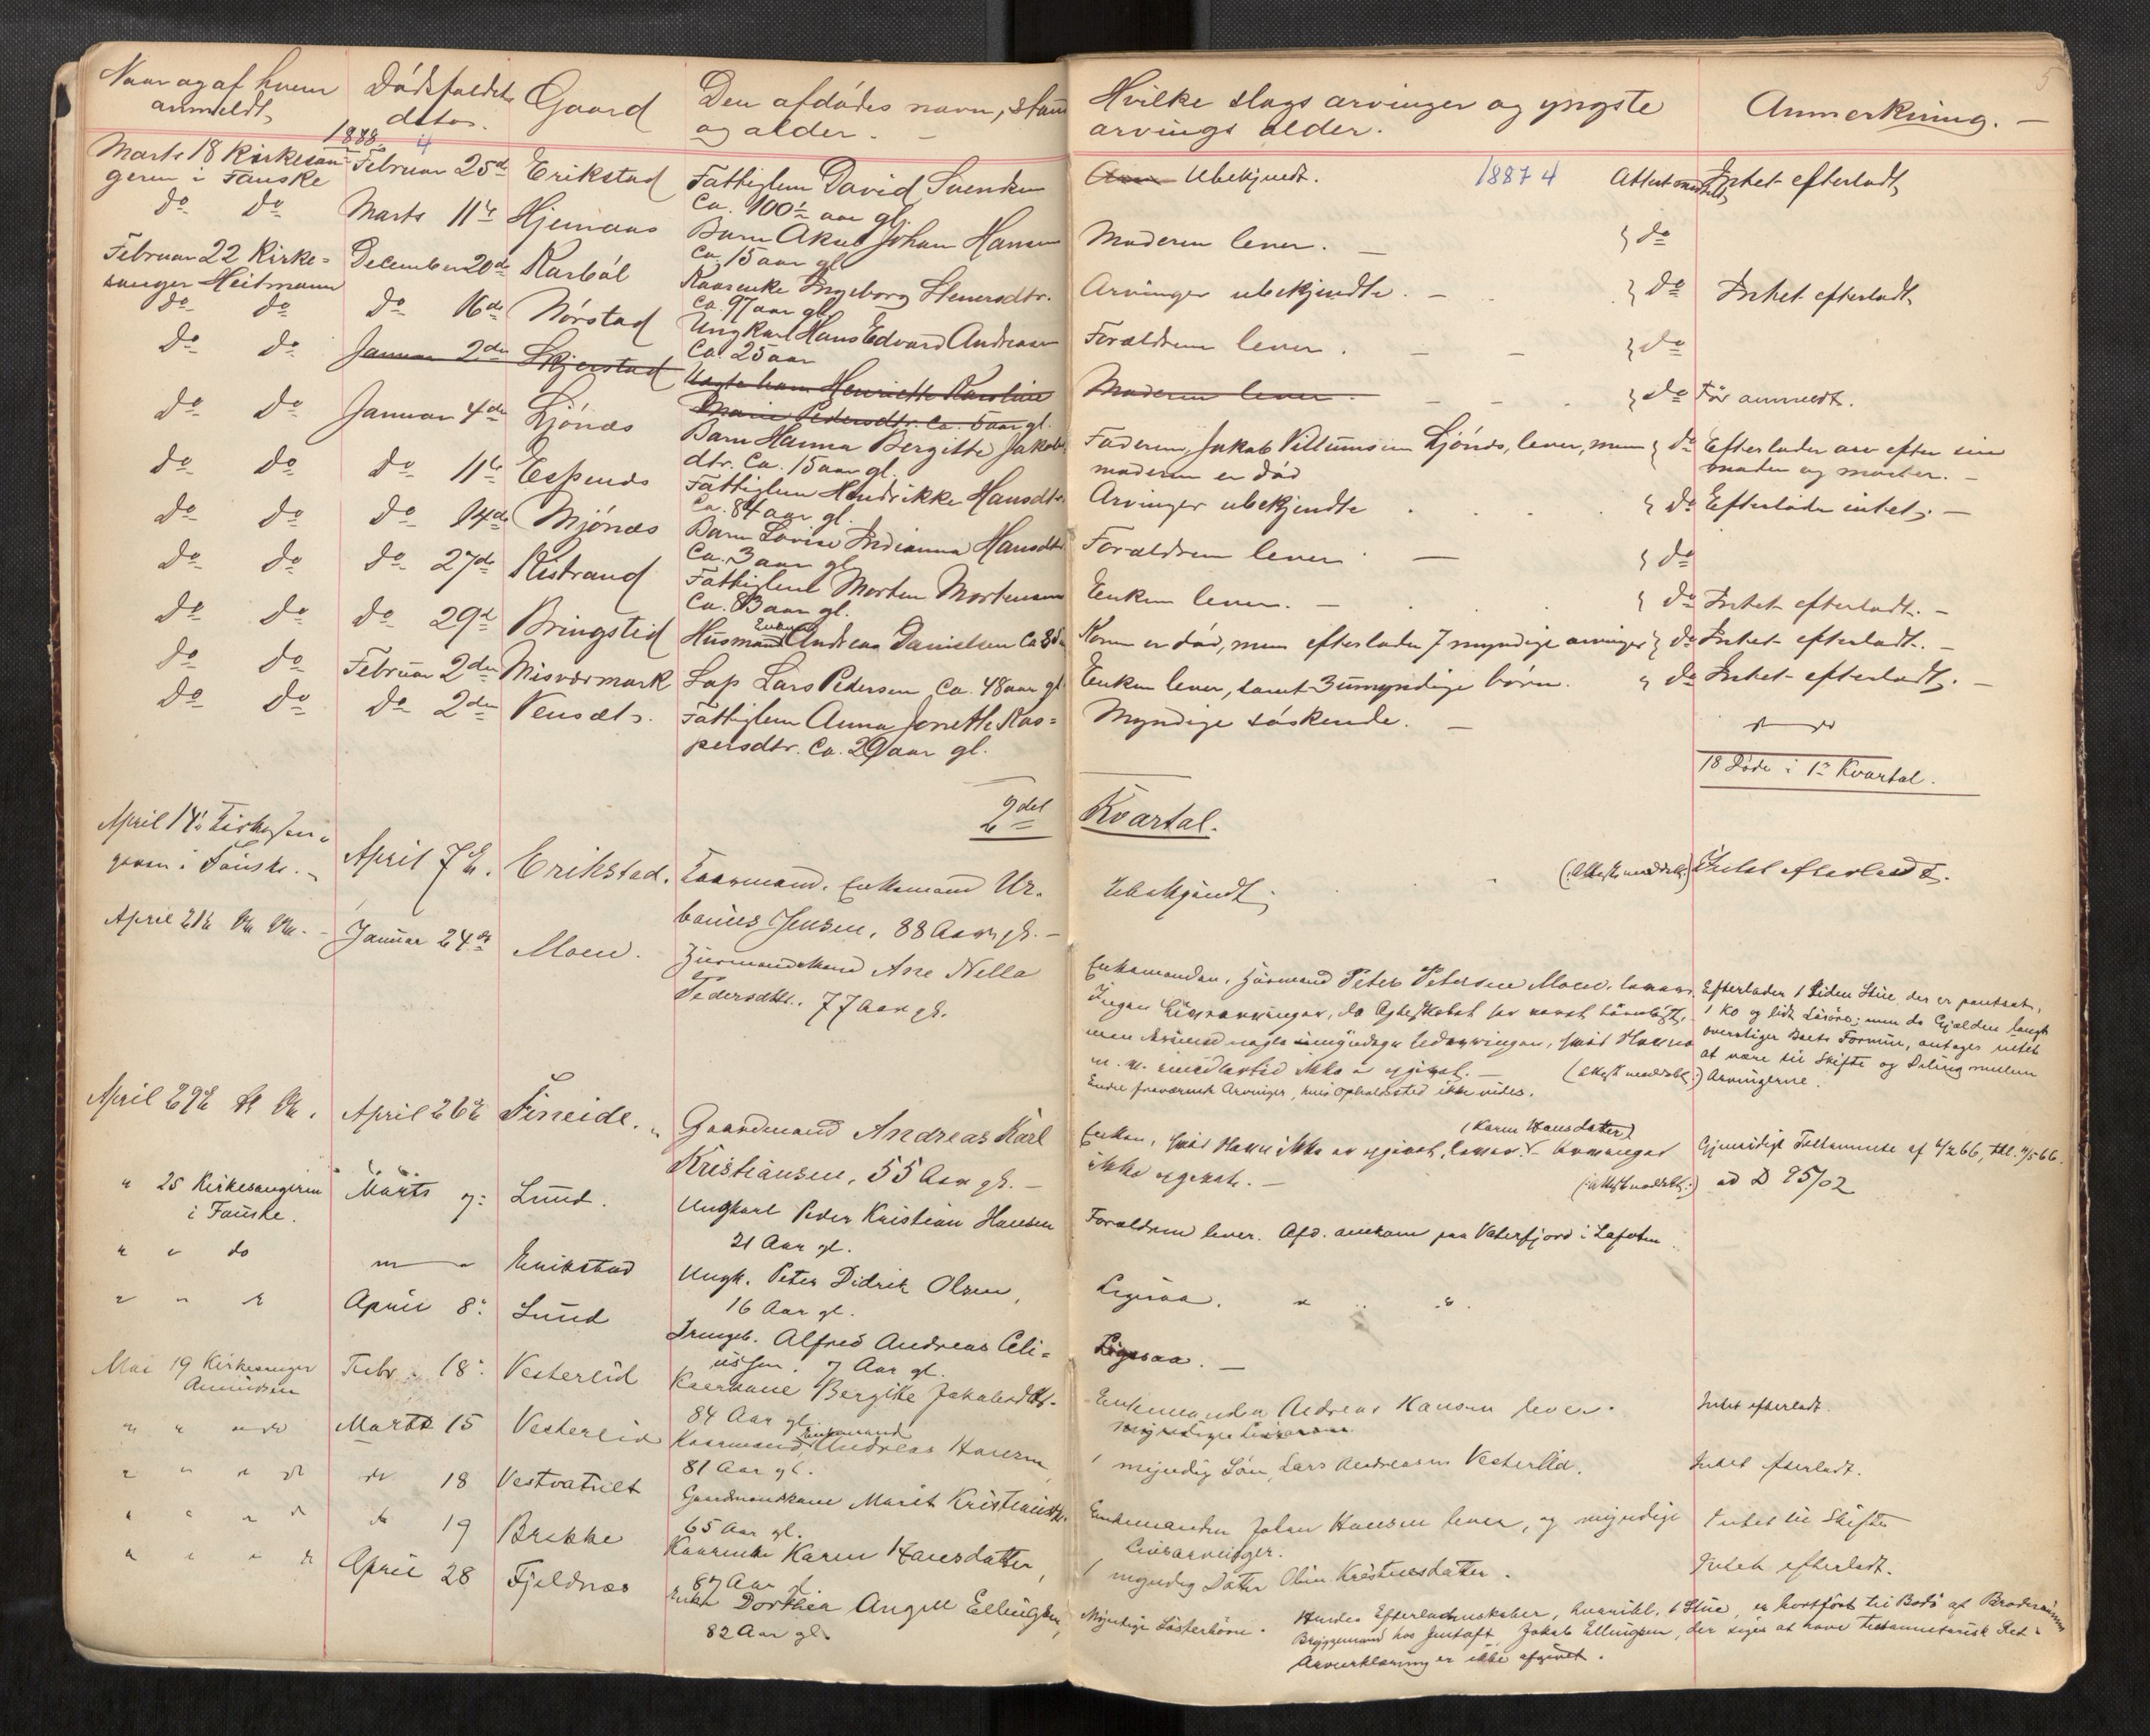 Naar og af hvem
anmeldt,
Dødsfaldets
dato.
Gaard
Den afdødes navn, stand
og alder. -
Hvilke slags arvinger og yngste
arvings alder.
Anmerkning. -
5
1888.
4
Marts 18 Kirkesan-
geren i Fauske
Februar 25de
Erikstad
Fattiglem David Svendsen
Ca. 100½ aar gl.
Ubekjendt.
1887 4
Attest meddelt,
Intet efterladt,
do do
Marts 11te
Hjemaas
Barn Johan Hansen
Ca. 15 aar gl.
Moderen lever. -
} do
Februar 22 Kirke=
sanger Heitmann
December 20de
Karbøl
Kaarenke Ingeborg Steensdtr.
Ca. 97 aar gl.
Arvinger ubekjendte. -
} do
Intet efterladt,
do do
do 16de
Nørstad
Ungkarl Hans Edvard Andreasen
Ca. 25 aar
Forældrene lever. - -
} do
do do
Januar 2den
Skjerstad
Henriette Karoline
Marie Pedersdtr. Ca. 5 aar gl.
Moderen lever. - - -
} do
Før anmeldt.
do do
Januar 4de
Ljønes
Barn Hanna Bergitte Jakobs
dtr. Ca. 15 aar gl.
Faderen, Jakob Villumsen Ljønes, lever, men
moderen er død
} do
Efterlader arv efter sin
moder og moster. -
do do
do 11te
Espenes
Fattiglem Hendrikke Hansdtr.
Ca. 84 aar gl.
Arvinger ubekjendte
} do
Efterlader intet. -
do do
do 14de
Mjønes
Barn Lovise Indianna Hansdtr
Ca. 3 aar gl.
Forældrene lever. -
} do
do do
do 27de
Ristrand
Fattiglem Morten Mortensen
Ca. 83 aar gl.
Enken lever. -
} do
Intet efterladt. -
do do
do 29de
Bringslid
Husmand Andreas Danielsen Ca
Konen er død, men efterlader 7 myndige arvinger
} do
Intet efterladt. -
do do
Februar 2den
Misværmark
Lap Lars Pedersen Ca. 48 aar gl
Enken lever, samt 3 umyndige børn.
} do
Intet efterladt. -
do do
do 2den
Vensæt.
Fattiglem Anna Jonette Kas=
persdtr. Ca. 29 aar gl.
Myndige søskende. -
18 Døde i 1ste Kvartal.
2det Kvartal.
April 14: Kirkesan=
geren i Fauske. -
April 7de.
Erikstad.
Kaarmand, Enkemand Ur.
banus Jensen, 88 Aar gl. -
Ubekjendt,
(Attest meddelt)
Intet efterladt.
April 21de do do. -
Januar 24de
Moen.
Husmandskone Ane Nella
Pedersdtr. 77 Aar gl.
Enkemanden, Husmand Peter Petersen Moen, lever.
Ingen Livsarvinger, da Ægteskabet har været barnløst,
men umyndige Udarvinger, hvis Navne
m. v. imidlertid ikke er opgivet. -
(Attest meddelt.)
Endel fraværende Arvinger, hvis Opholdssted ikke vides.
Efterlader 1 liden Stue, der er pantsat,
1 Ko og lidt Løsøre; men da Gjælden langt
overstiger Boets Formue, antages intet
at være til Skifte og Deling mellem
Arvingerne.
April 29de do do.
April 26de
Fineide.
Gaardmand Andreas Karl
Kristiansen, 55 Aar gl. -
Enken, hvis Navn ikke er opgivet, lever. Arvinger
(Karen Hansdatter)
ikke opgivet. -
(Attest meddelt.)
Gjensidigt Testamente af 4/2 66, thl. 4/5 66.
ad D 95/02
" 25 Kirkesangeren
i Fauske.
Marts 7:
Lund.
Ungkarl Peder Kristian Hansen
21 Aar gl.
Forældrene lever. Afd. omkom paa Vaterfjord i Lofoten.
" " do
Erikstad
Ungk. Peter Didrik Olsen,
16 Aar gl.
Ligesaa. " " "
" " "
April 8:
Lund
Drengeb. Alfred Andreas Celi=
ussen. 7 Aar gl.
Ligesaa. -
Mai 19 Kirkesanger
Amundsen
Febr. 18:
Vesterlid
Kaarkone Bergitte Jakobsdtr.
84 Aar gl.
Enkemanden Andreas Hansen lever.
myndige
Intet efterladt.
" " "
Marts 15
Vesterlid
Enkemand
Kaarmand Andreas Hansen,
81 Aar gl.
1 myndig Søn, Lars Andreasen Vesterlid.
Intet efterladt.
" " " do
do 18
Vestvatnet
Gaardmandskone Marit Kristiansdtr.
65 Aar gl.
Enkemanden Johan Hansen lever, og myndige
Livsarvinger.
Intet til Skifte
" " " "
do 19
Brekke
Kaarenke Karen Hansdatter,
87 Aar gl.
1 myndig Datter Oline Kristensdatter.
Intet efterladt.
" " " do
April 28
Fjeldnes
Enke Dorthea Angell Ellingsen,
82 Aar gl.
Myndige Søsterbørn.
Hendes Efterladenskaber, hvoriblt. 1 Stue, er bortført til Bodø af Brodersønnen
Bryggemand hos Jakob Ellingsen, der siges at have testamentarisk Ret.
Arveerklæring er ikke afgivet.